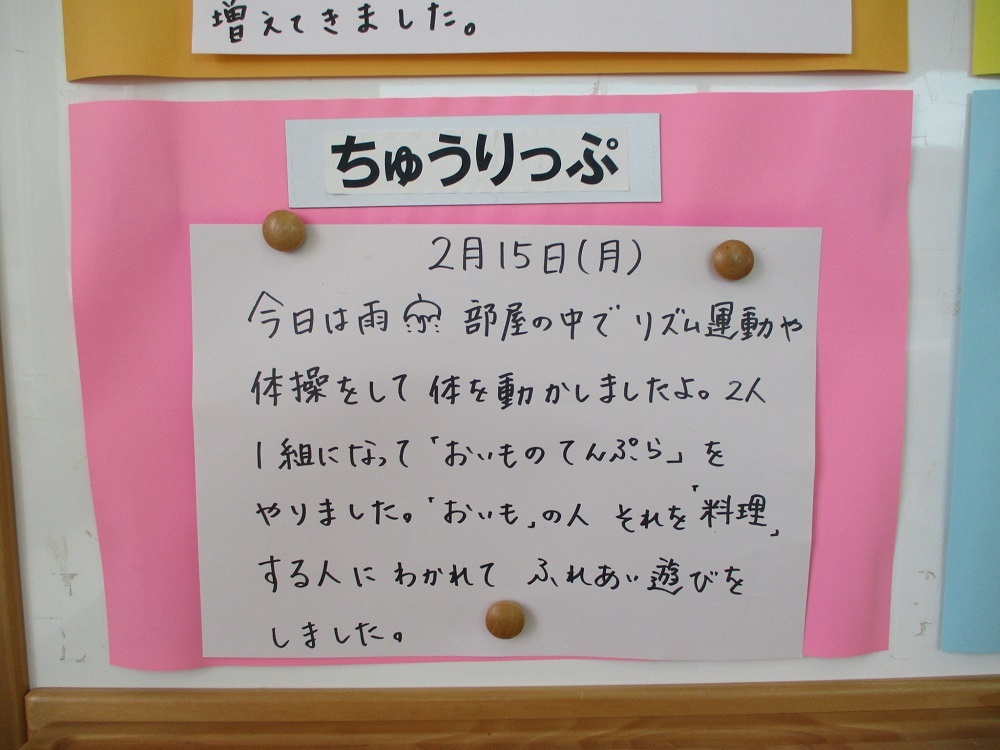 増えてきました。
ちゅうりっぷ
2月15日(月)
今日は雨 部屋の中で リズム運動や
体操をして 体を動かしましたよ。2人
1組になって「おいものてんぷら」を
やりました。「おいも」の人 それを「料理」
する人に わかれて ふれあい遊びを
しました。